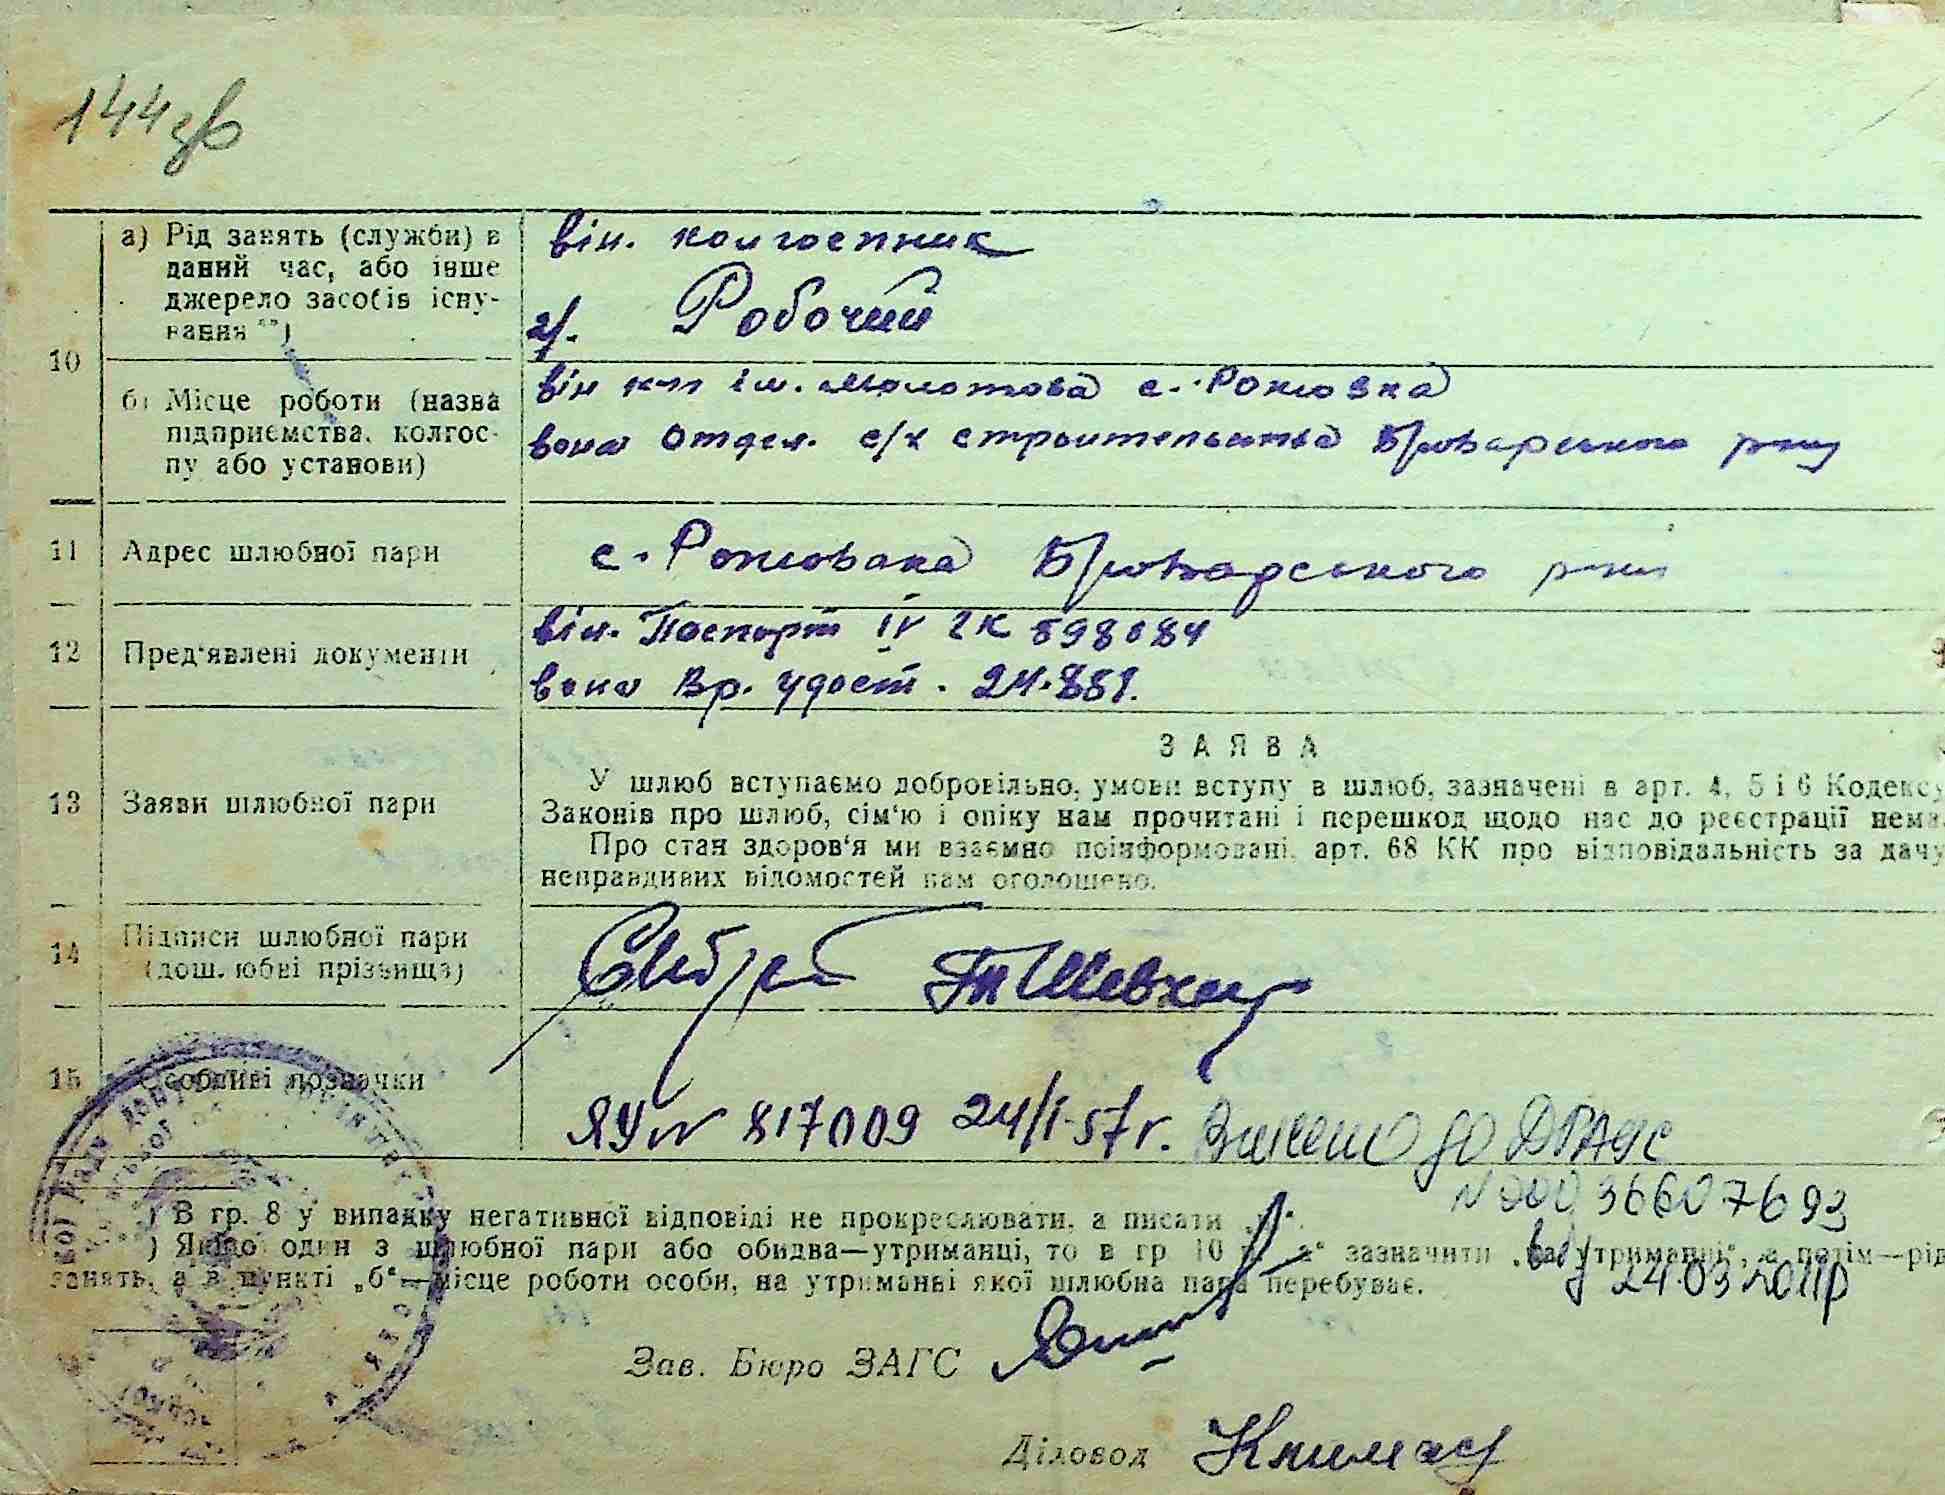 144зв
10
а) Рід занять (служби) в
даний час, або інше
джерело засобів існу-
вання **)
він. колгоспник
2/. Робочий
б) Місце роботи (назва
підприємства, колгос-
пу або установи)
він к-п ім. Молотова с. Рожовка
вона Отдел. с/х строительства Броварського р-ну
11 Адрес шлюбної пари
с. Рожовка Броварського р-ну
12 Пред'явлені документи
він. Паспорт IV 2К 598084
вона Вр. удост. 24.881.
13 Заяви шлюбної пари
ЗАЯВА
У шлюб вступаємо добровільно, умови вступу в шлюб, зазначені в арт. 4, 5 і 6 Кодексу
Законів про шлюб, сім'ю і опіку нам прочитані і перешкод щодо нас до реєстрації нема.
Про стан здоров'я ми взаємно поінформовані, арт. 68 КК про відповідальність за дачу
неправдивих відомостей нам оголошено.
14 Підписи шлюбної пари
(дошлюбні прізвища)
15 Особливі позначки
ЯУ № 817009 24/I-57 г. Внесено до ДРАЦС
N 000 36607693
від 24.03.2011р
) В гр. 8 у випадку негативної відповіді не прокреслювати, а писати
) Якщо один з шлюбної пари або обидва—утриманці, то в гр 10 п. „а“ зазначити „на утриманні“, а потім—рід
занять, а в пункті „б“—місце роботи особи, на утриманні якої шлюбна пара перебуває.
Зав. Бюро ЗАГС
Діловод